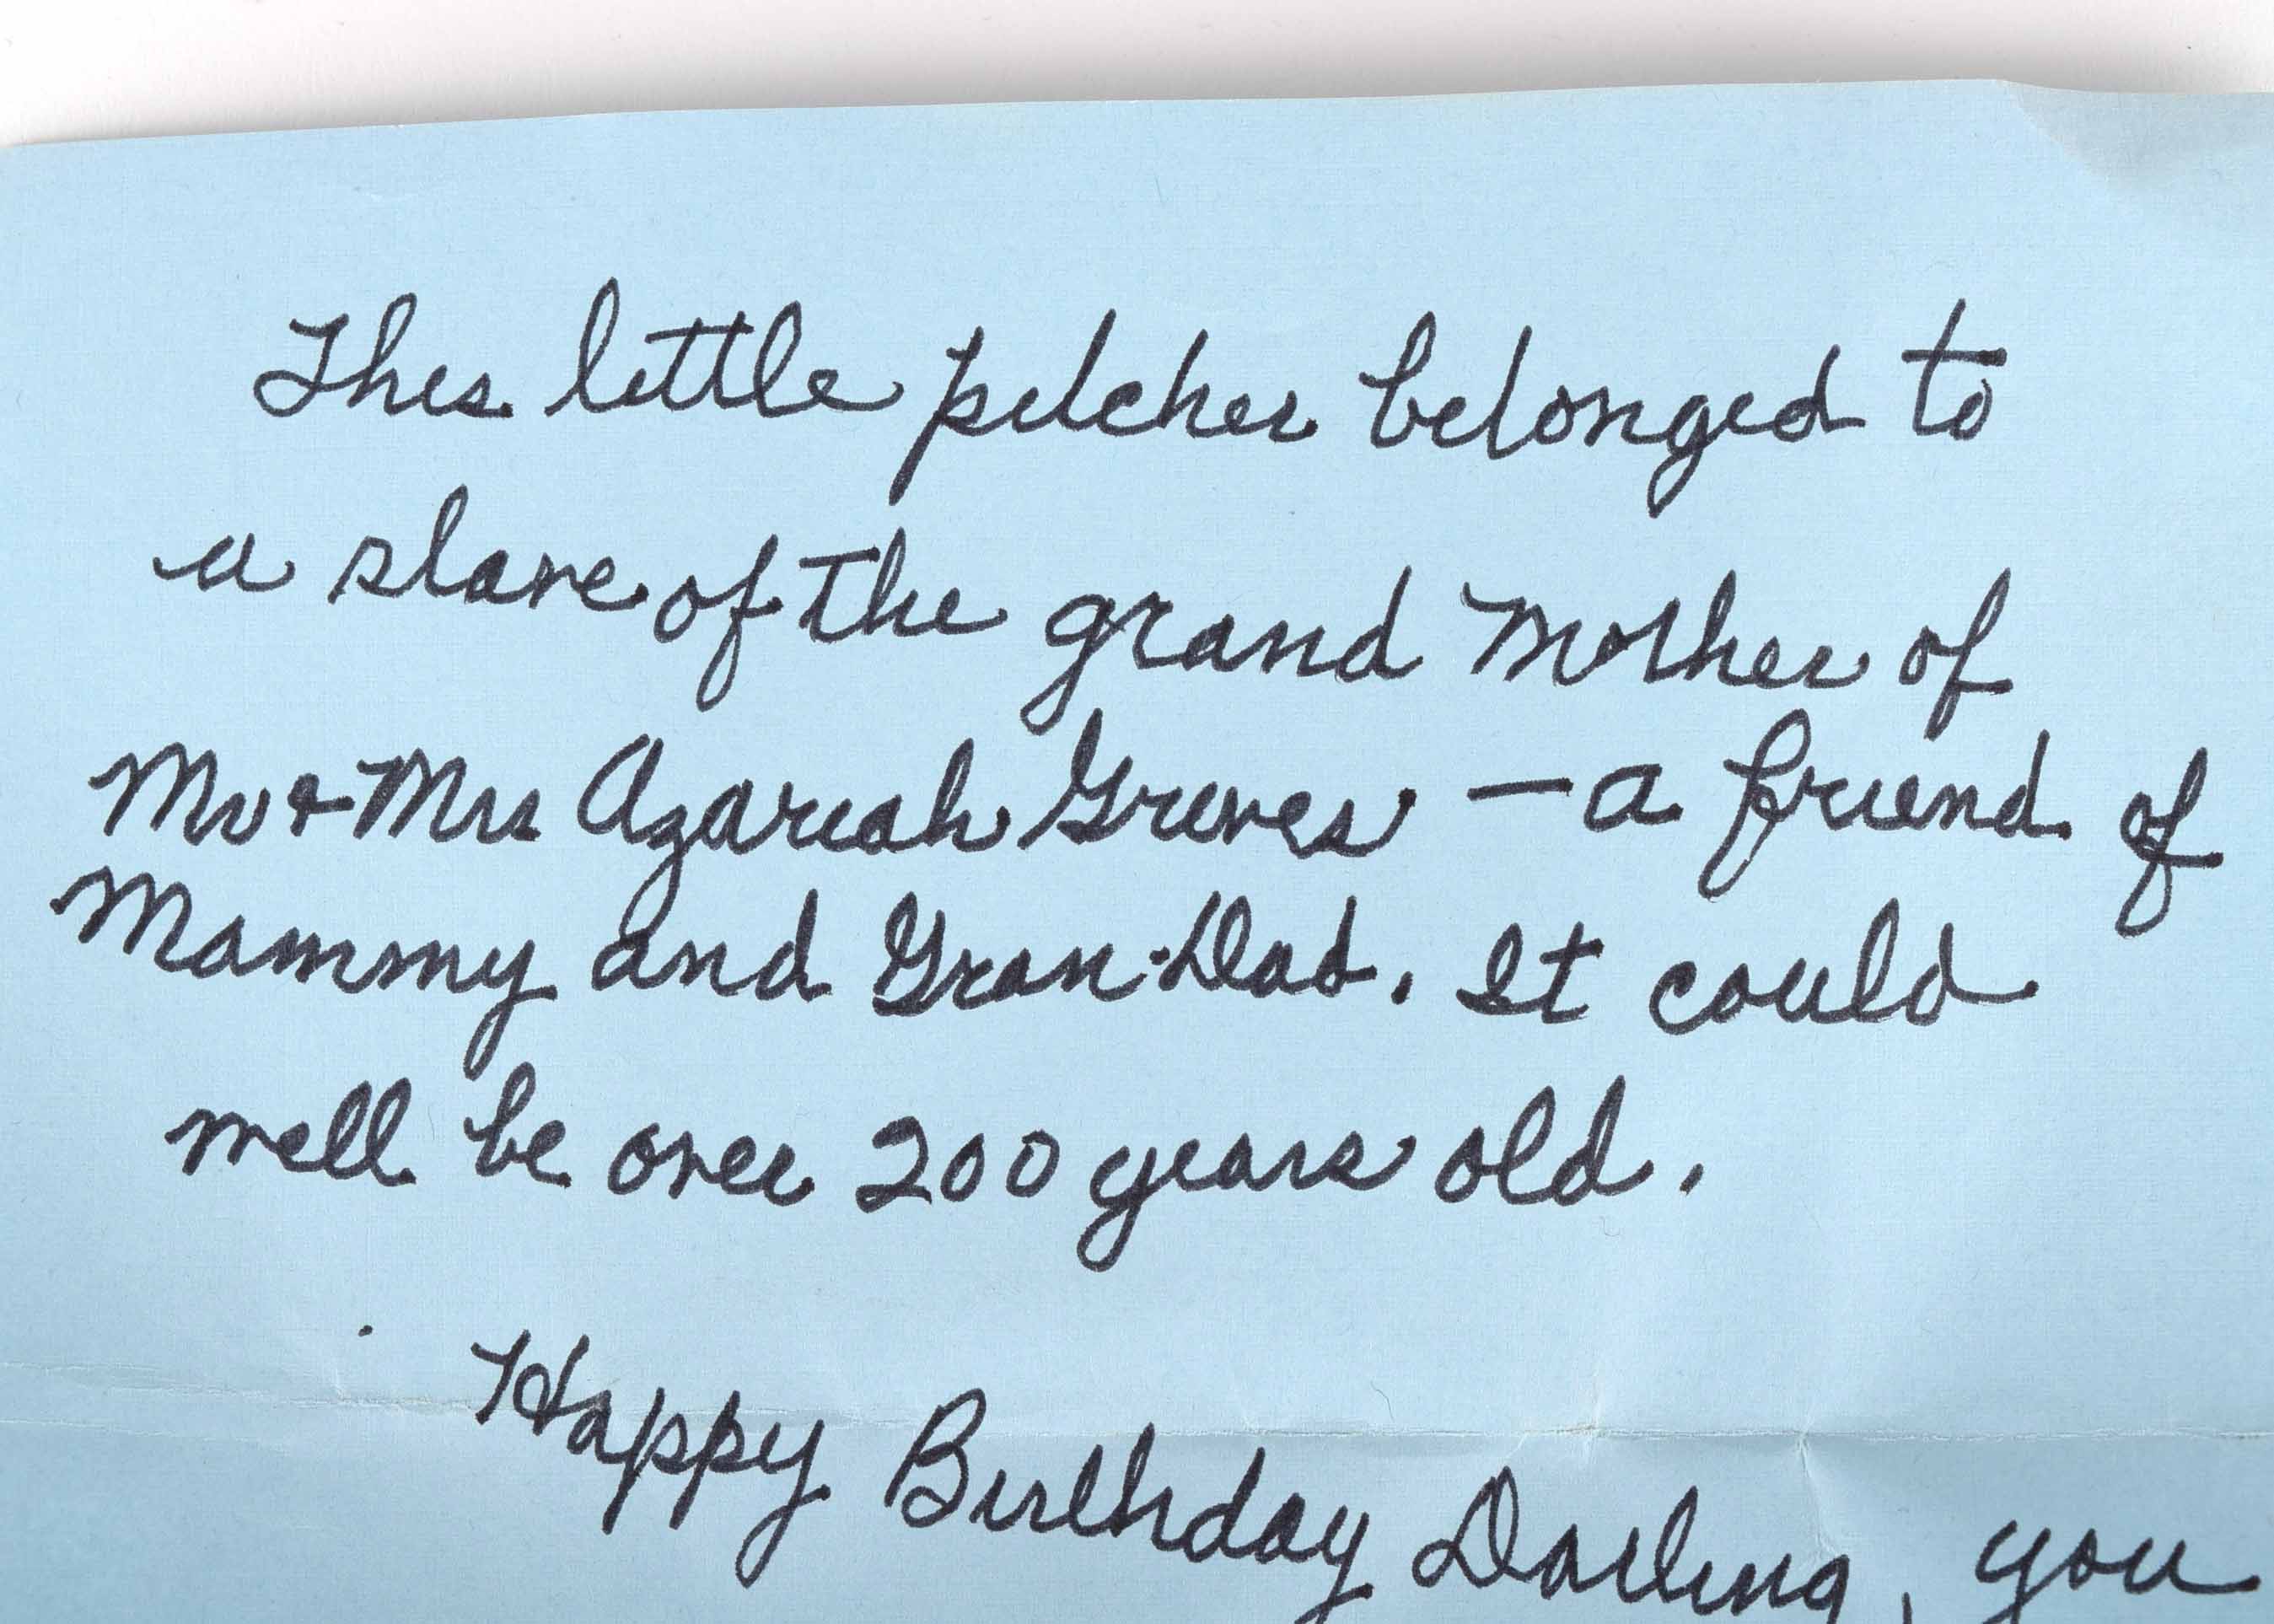 This little pitcher belonged to
a slave of the grand Mother of
Mr & Mrs Azariah Graves - a friend of
Mammy and Gran-Dad. It could
well be over 200 years old.
Happy Birthday Darling, you